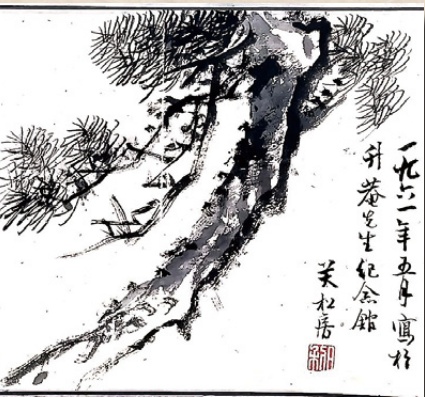 一九六一年五月寫於
升菴先生紀念館
关松房